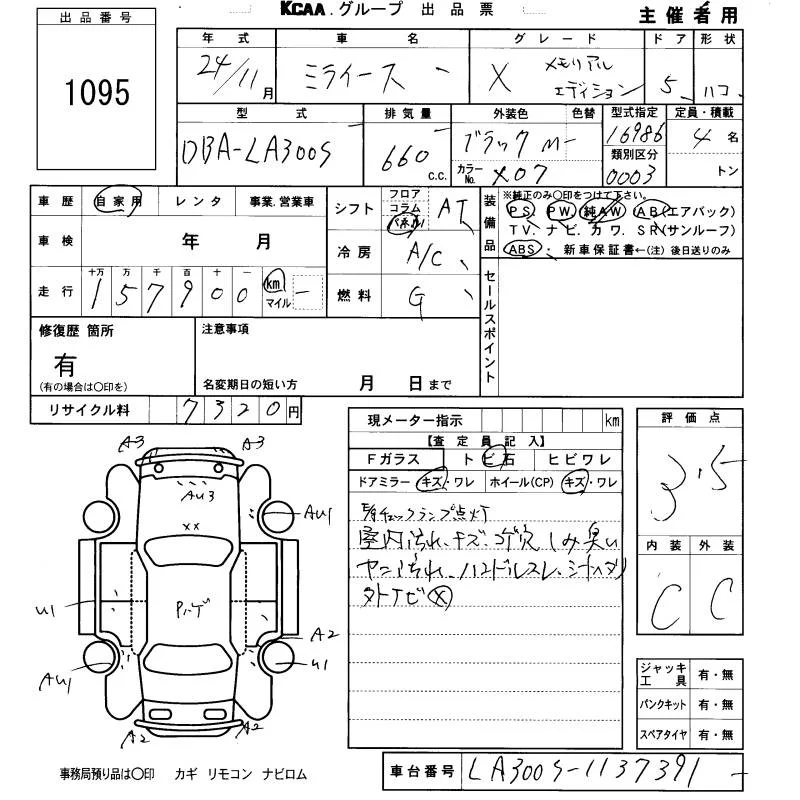 KCAA.グループ 出品票
主催者用
出品番号
1095
年式 車名 グレード ドア 形状
24/11月 ミライース X メモリアル エディション 5 ハコ
型式 排気量 外装色 色替 型式指定 定員・積載
DBA-LA300S 660 c.c. ブラックM 16986 4名
カラーNo. X07 類別区分 0003 トン
車歴 自家用 レンタ 事業.営業車
シフト フロア コラム パネル AT
装備品 ※純正のみ〇印をつけて下さい。
PS PW 純AW AB(エアバック)
TV. ナビ. カワ. SR(サンルーフ)
ABS・ 新車保証書←(注)後日送りのみ
車検 年 月
冷房 A/C
走行 十万 万 千 百 十 一
157900 km マイル
燃料 G
セールスポイント
修復歴 箇所
有
(有の場合は〇印を)
注意事項
名変期日の短い方 月 日まで
リサイクル料 7320円
現メーター指示 km
【査定員記入】
Fガラス トビ石 ヒビワレ
ドアミラー キズ・ワレ ホイール(CP) キズ・ワレ
チェックランプ点灯
室内汚れ、キズ、コゲ穴 しみ 臭い
ヤニ汚れ、ハンドルスレ、シートヘタリ
外ナビⓧ
評価点
3.5
内装 外装
C C
ジャッキ 工具 有・無
パンクキット 有・無
スペアタイヤ 有・無
A3 A3
AU3
AU1
xx
U1
A2
AU1 U1
A2 A2
事務局預り品は〇印 カギ リモコン ナビロム
車台番号 LA300S-1137391